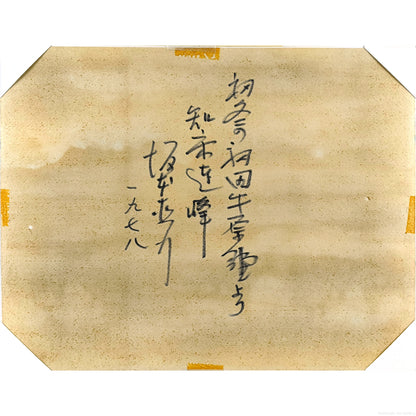 初冬の初田牛原野より
知床連峰
坂本直行
一九七八